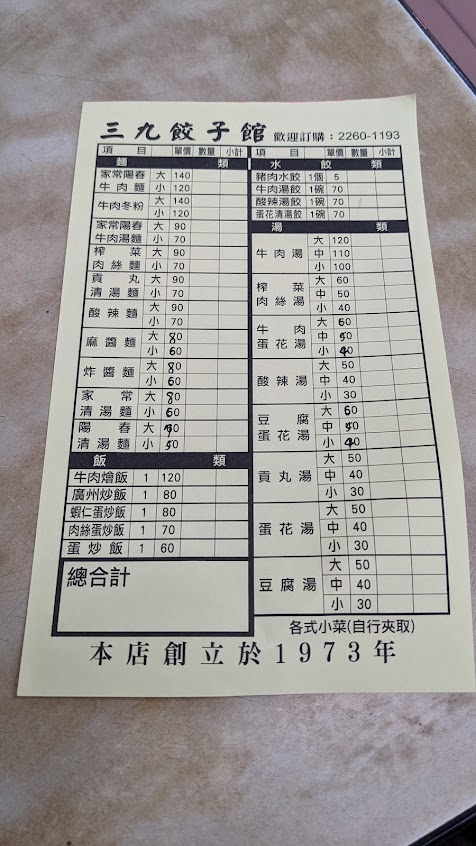 三九餃子館 歡迎訂購：2260-1193
項 目 單價 數量 小計
麵 類
家常陽春牛肉麵 大 140
小 120
牛肉冬粉 大 140
小 120
家常陽春牛肉湯麵 大 90
小 70
榨菜肉絲麵 大 90
小 70
貢丸清湯麵 大 90
小 70
酸辣麵 大 90
小 70
麻醬麵 大 80
小 60
炸醬麵 大 80
小 60
家常清湯麵 大 80
小 60
陽春清湯麵 大
小 50
飯 類
牛肉燴飯 1 120
廣州炒飯 1 80
蝦仁蛋炒飯 1 80
肉絲蛋炒飯 1 70
蛋炒飯 1 60
總合計
項 目 單價 數量 小計
水 餃 類
豬肉水餃 1個 5
牛肉湯餃 1碗 70
酸辣湯餃 1碗 70
蛋花清湯餃 1碗 70
湯 類
牛肉湯 大 120
中 110
小 100
榨菜肉絲湯 大 60
中 50
小 40
牛肉蛋花湯 大 60
中 50
小 40
酸辣湯 大 50
中 40
小 30
豆腐蛋花湯 大 60
中 50
小 40
貢丸湯 大 50
中 40
小 30
蛋花湯 大 50
中 40
小 30
豆腐湯 大 50
中 40
小 30
各式小菜(自行夾取)
本店創立於1973年